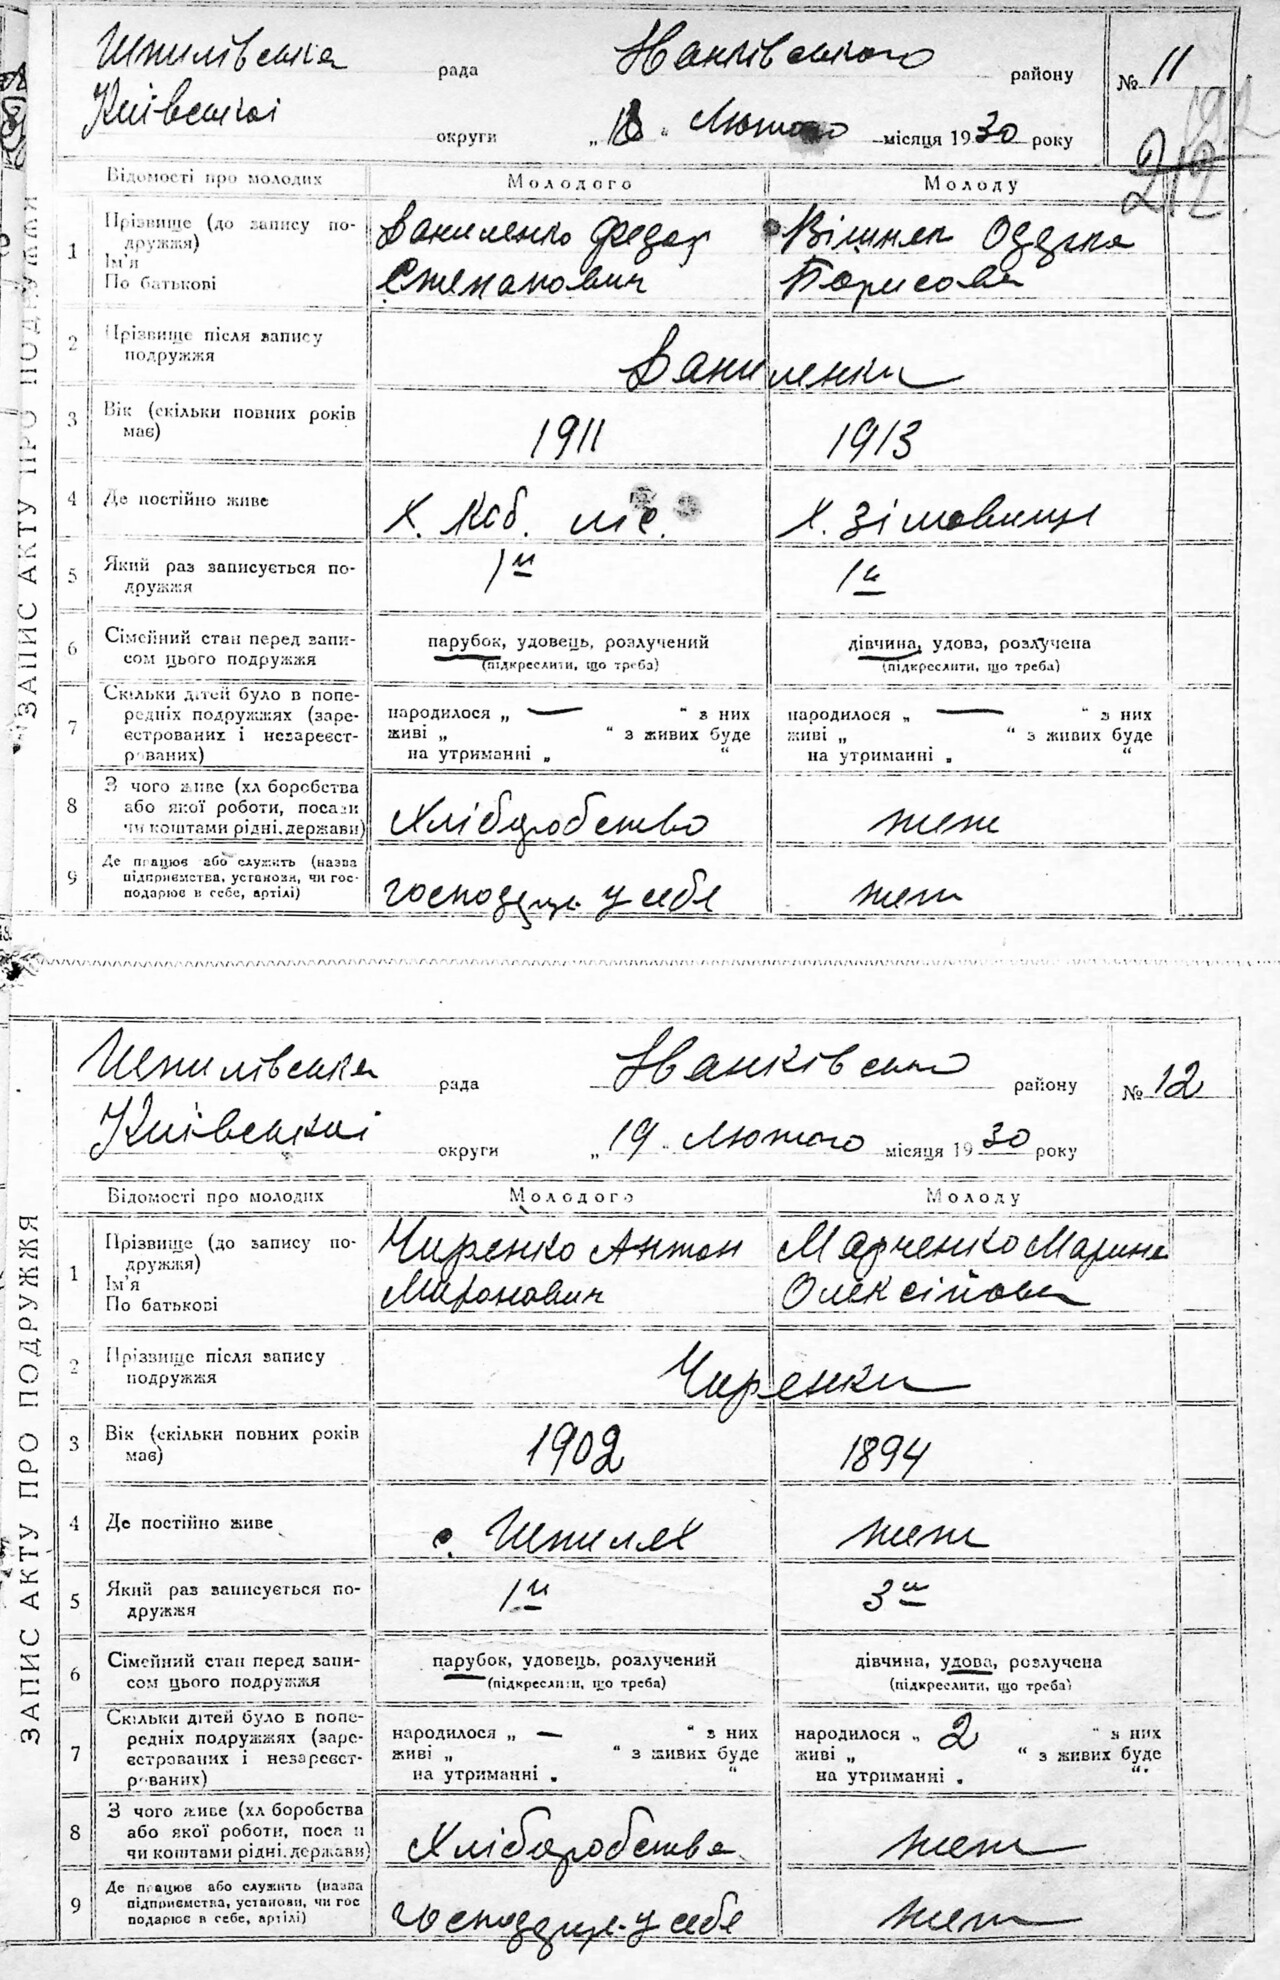 Шпилівська рада Іванківського району № 11
Київської округи „18“ Лютого місяця 1930 року
212
ЗАПИС АКТУ ПРО ПОДРУЖЖЯ
Відомості про молодих Молодого Молоду
1 Прізвище (до запису по- Даниленко Федор Вілинец Одарка
дружжя)
Ім'я
По батькові Степанович Борисова
2 Прізвище після запису
подружжя Даниленки
3 Вік (скільки повних років
має) 1911 1913
4 Де постійно живе Х. Х. Зімовище
5 Який раз записується по- 1й 1й
дружжя
6 Сімейний стан перед запи- парубок, удовець, розлучений дівчина, удова, розлучена
сом цього подружжя (підкреслити, що треба) (підкреслити, що треба)
7 Скільки дітей було в попе-
редніх подружжях (заре- народилося „ — “ з них народилося „ — “ з них
єстрованих і незареєст- живі „ “ з живих буде живі „ “ з живих буде
рованих) на утриманні „ “ на утриманні „ “
8 З чого живе (хліборобства
або якої роботи, посади Хліборобство теж
чи коштами рідні, держави)
9 Де працює або служить (назва
підприємства, установи, чи гос- господарює у себе теж
подарює в себе, артілі)
Шпилівська рада Іванківсько району № 12
Київської округи „19“ Лютого місяця 1930 року
ЗАПИС АКТУ ПРО ПОДРУЖЖЯ
Відомості про молодих Молодого Молоду
1 Прізвище (до запису по- Чиренко Антон Марченко Марина
дружжя)
Ім'я
По батькові Миронович Олексійова
2 Прізвище після запису
подружжя Чиренки
3 Вік (скільки повних років
має) 1902 1894
4 Де постійно живе с. Шпилях теж
5 Який раз записується по- 1й 3й
дружжя
6 Сімейний стан перед запи- парубок, удовець, розлучений дівчина, удова, розлучена
сом цього подружжя (підкреслити, що треба) (підкреслити, що треба)
7 Скільки дітей було в попе-
редніх подружжях (заре- народилося „ — “ з них народилося „ 2 “ з них
єстрованих і незареєст- живі „ “ з живих буде живі „ “ з живих буде
рованих) на утриманні „ “ на утриманні „ “
8 З чого живе (хліборобства
або якої роботи, посади Хліборобства теж
чи коштами рідні, держави)
9 Де працює або служить (назва
підприємства, установи, чи гос господарює у себе теж
подарює в себе, артілі)